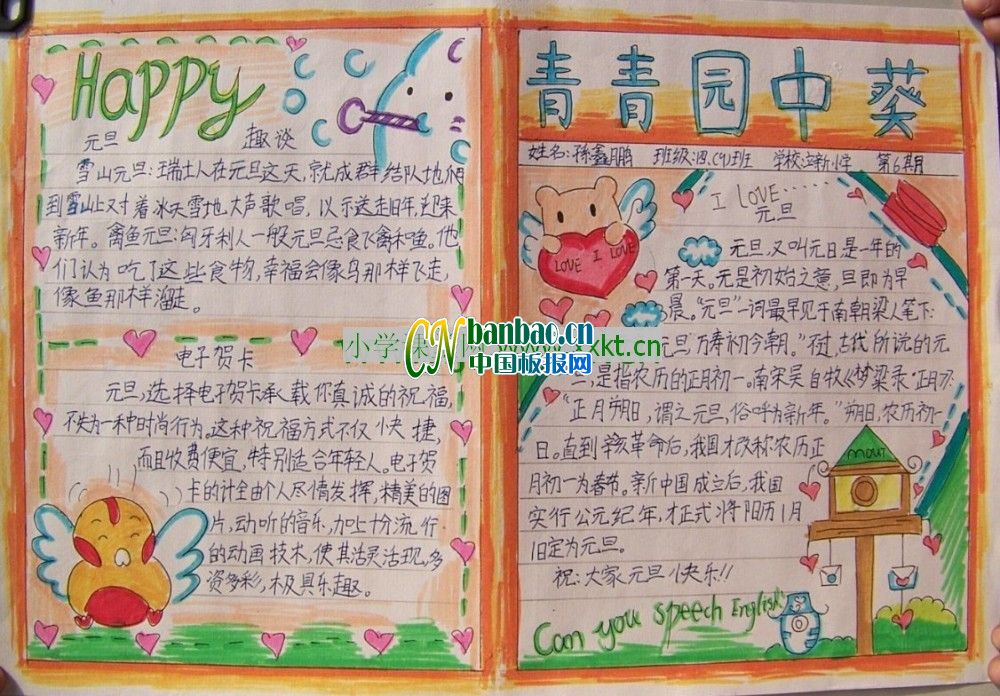 Happy
元旦 趣谈
雪山元旦:瑞士人在元旦这天,就成群结队地们
到雪山上对着冰天雪地大声歌唱,以示送走旧年,迎来
新年。禽鱼元旦:匈牙利人一般元旦忌食飞禽和鱼。他
们认为吃了这些食物,幸福会像鸟那样飞走,
像鱼那样溜走。
电子贺卡
元旦,选择电子贺卡承载你真诚的祝福,
不失为一种时尚行为。这种祝福方式不仅快捷,
而且收费便宜,特别适合年轻人。电子贺
卡的计全由个人尽情发挥,精美的图
片,动听的音乐,加上十分流行
的动画技术,使其活灵活现,多
姿多彩,极具乐趣。
青青园中葵
姓名:孙鑫鹏 班级:四.(4)班 学校:立新小学 第6期
I LOVE......
元旦
LOVE I LOVE
元旦,又叫元日是一年的
第一天。元是初始之意,旦即为早
晨。“元旦”一词最早见于南朝梁人笔下:
元旦 万寿初今朝。”不过,古代所说的元
旦,是指农历的正月初一。南宋吴自牧《梦粱录·正月》:
“正月朔日,谓之元旦,俗呼为新年。”朔日,农历初一
日。直到辛亥革命后,我国才改称农历正
月初一为春节。新中国成立后,我国
实行公元纪年,才正式将阳历1月
1日定为元旦。
祝:大家元旦快乐!!
Can you speech English
小学课 网 www. xxkt.cn
CN banbao.cn
中国板报网